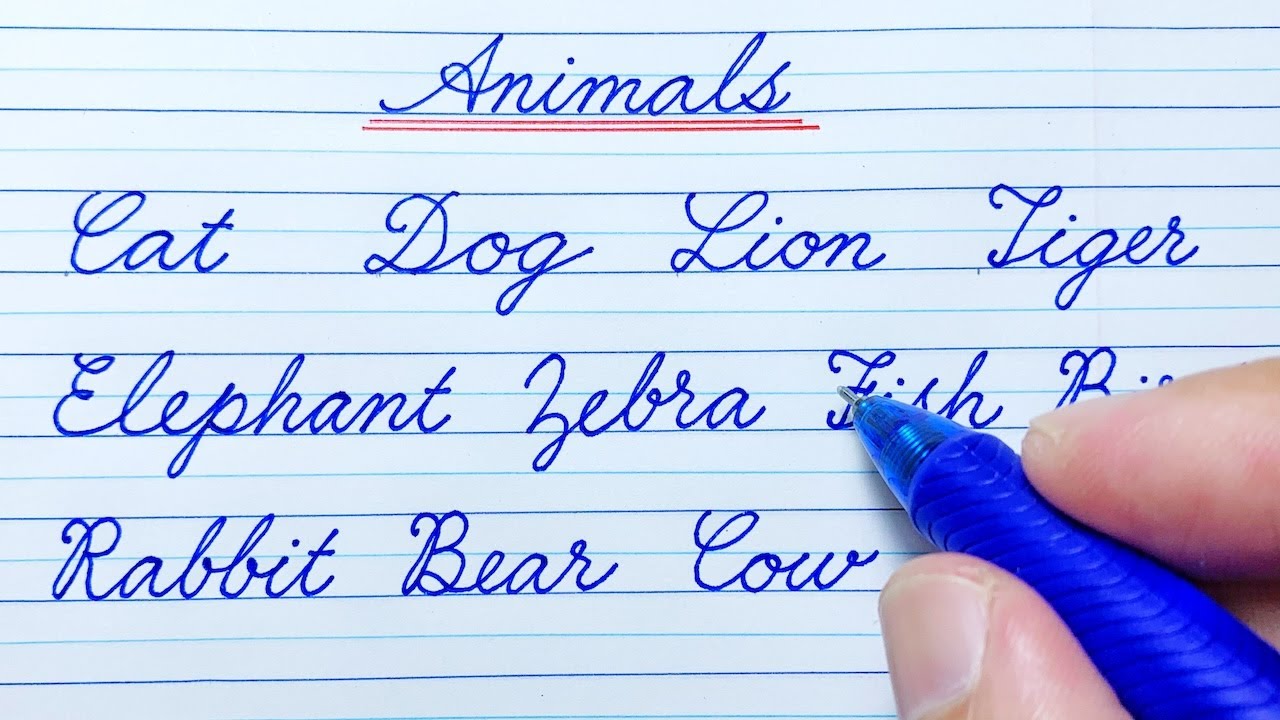 Animals
Cat Dog Lion Tiger
Elephant Zebra Fish
Rabbit Bear Cow